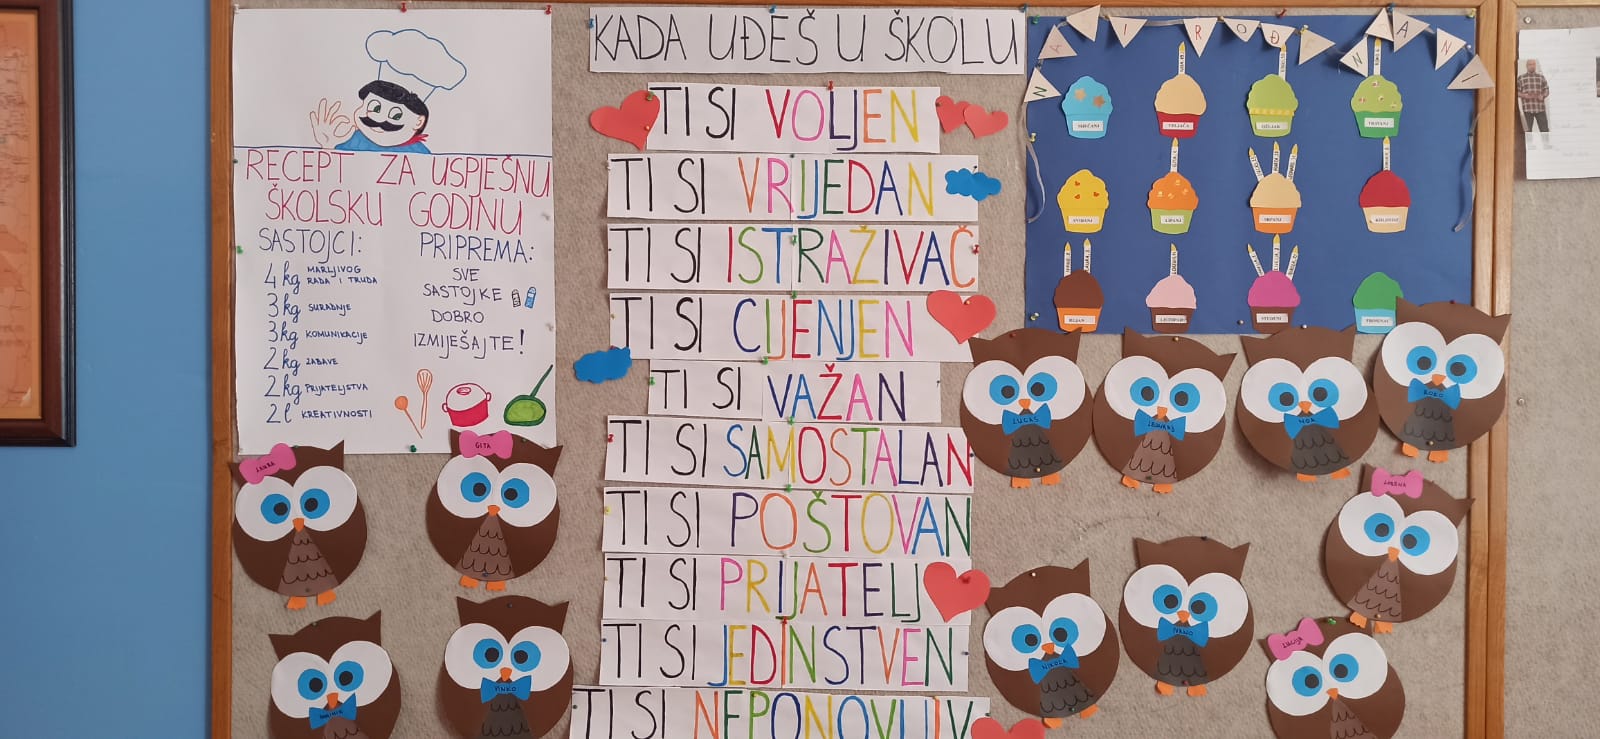 RECEPT ZA USPJEŠNU
ŠKOLSKU GODINU
SASTOJCI:
4 kg MARLJIVOG
RADA I TRUDA
3 kg SURADNJE
3 kg KOMUNIKACIJE
2 kg ZABAVE
2 kg PRIJATELJSTVA
2 l KREATIVNOSTI
PRIPREMA:
SVE
SASTOJKE
DOBRO
IZMIJEŠAJTE!
KADA UĐEŠ U ŠKOLU
TI SI VOLJEN
TI SI VRIJEDAN
TI SI ISTRAŽIVAČ
TI SI CIJENJEN
TI SI VAŽAN
TI SI SAMOSTALAN
TI SI POŠTOVAN
TI SI PRIJATELJ
TI SI JEDINSTVEN
TI SI NEPONOVLJIV
NAŠI ROĐENDANI
SIJEČANJ
VELJAČA
OŽUJAK
TRAVANJ
SVIBANJ
LIPANJ
SRPANJ
KOLOVOZ
RUJAN
LISTOPAD
STUDENI
PROSINAC
GITA
VINKO
LUCAS
NOA
ROKO
LORENA
NIKOLA
IVANO
LUCIJA